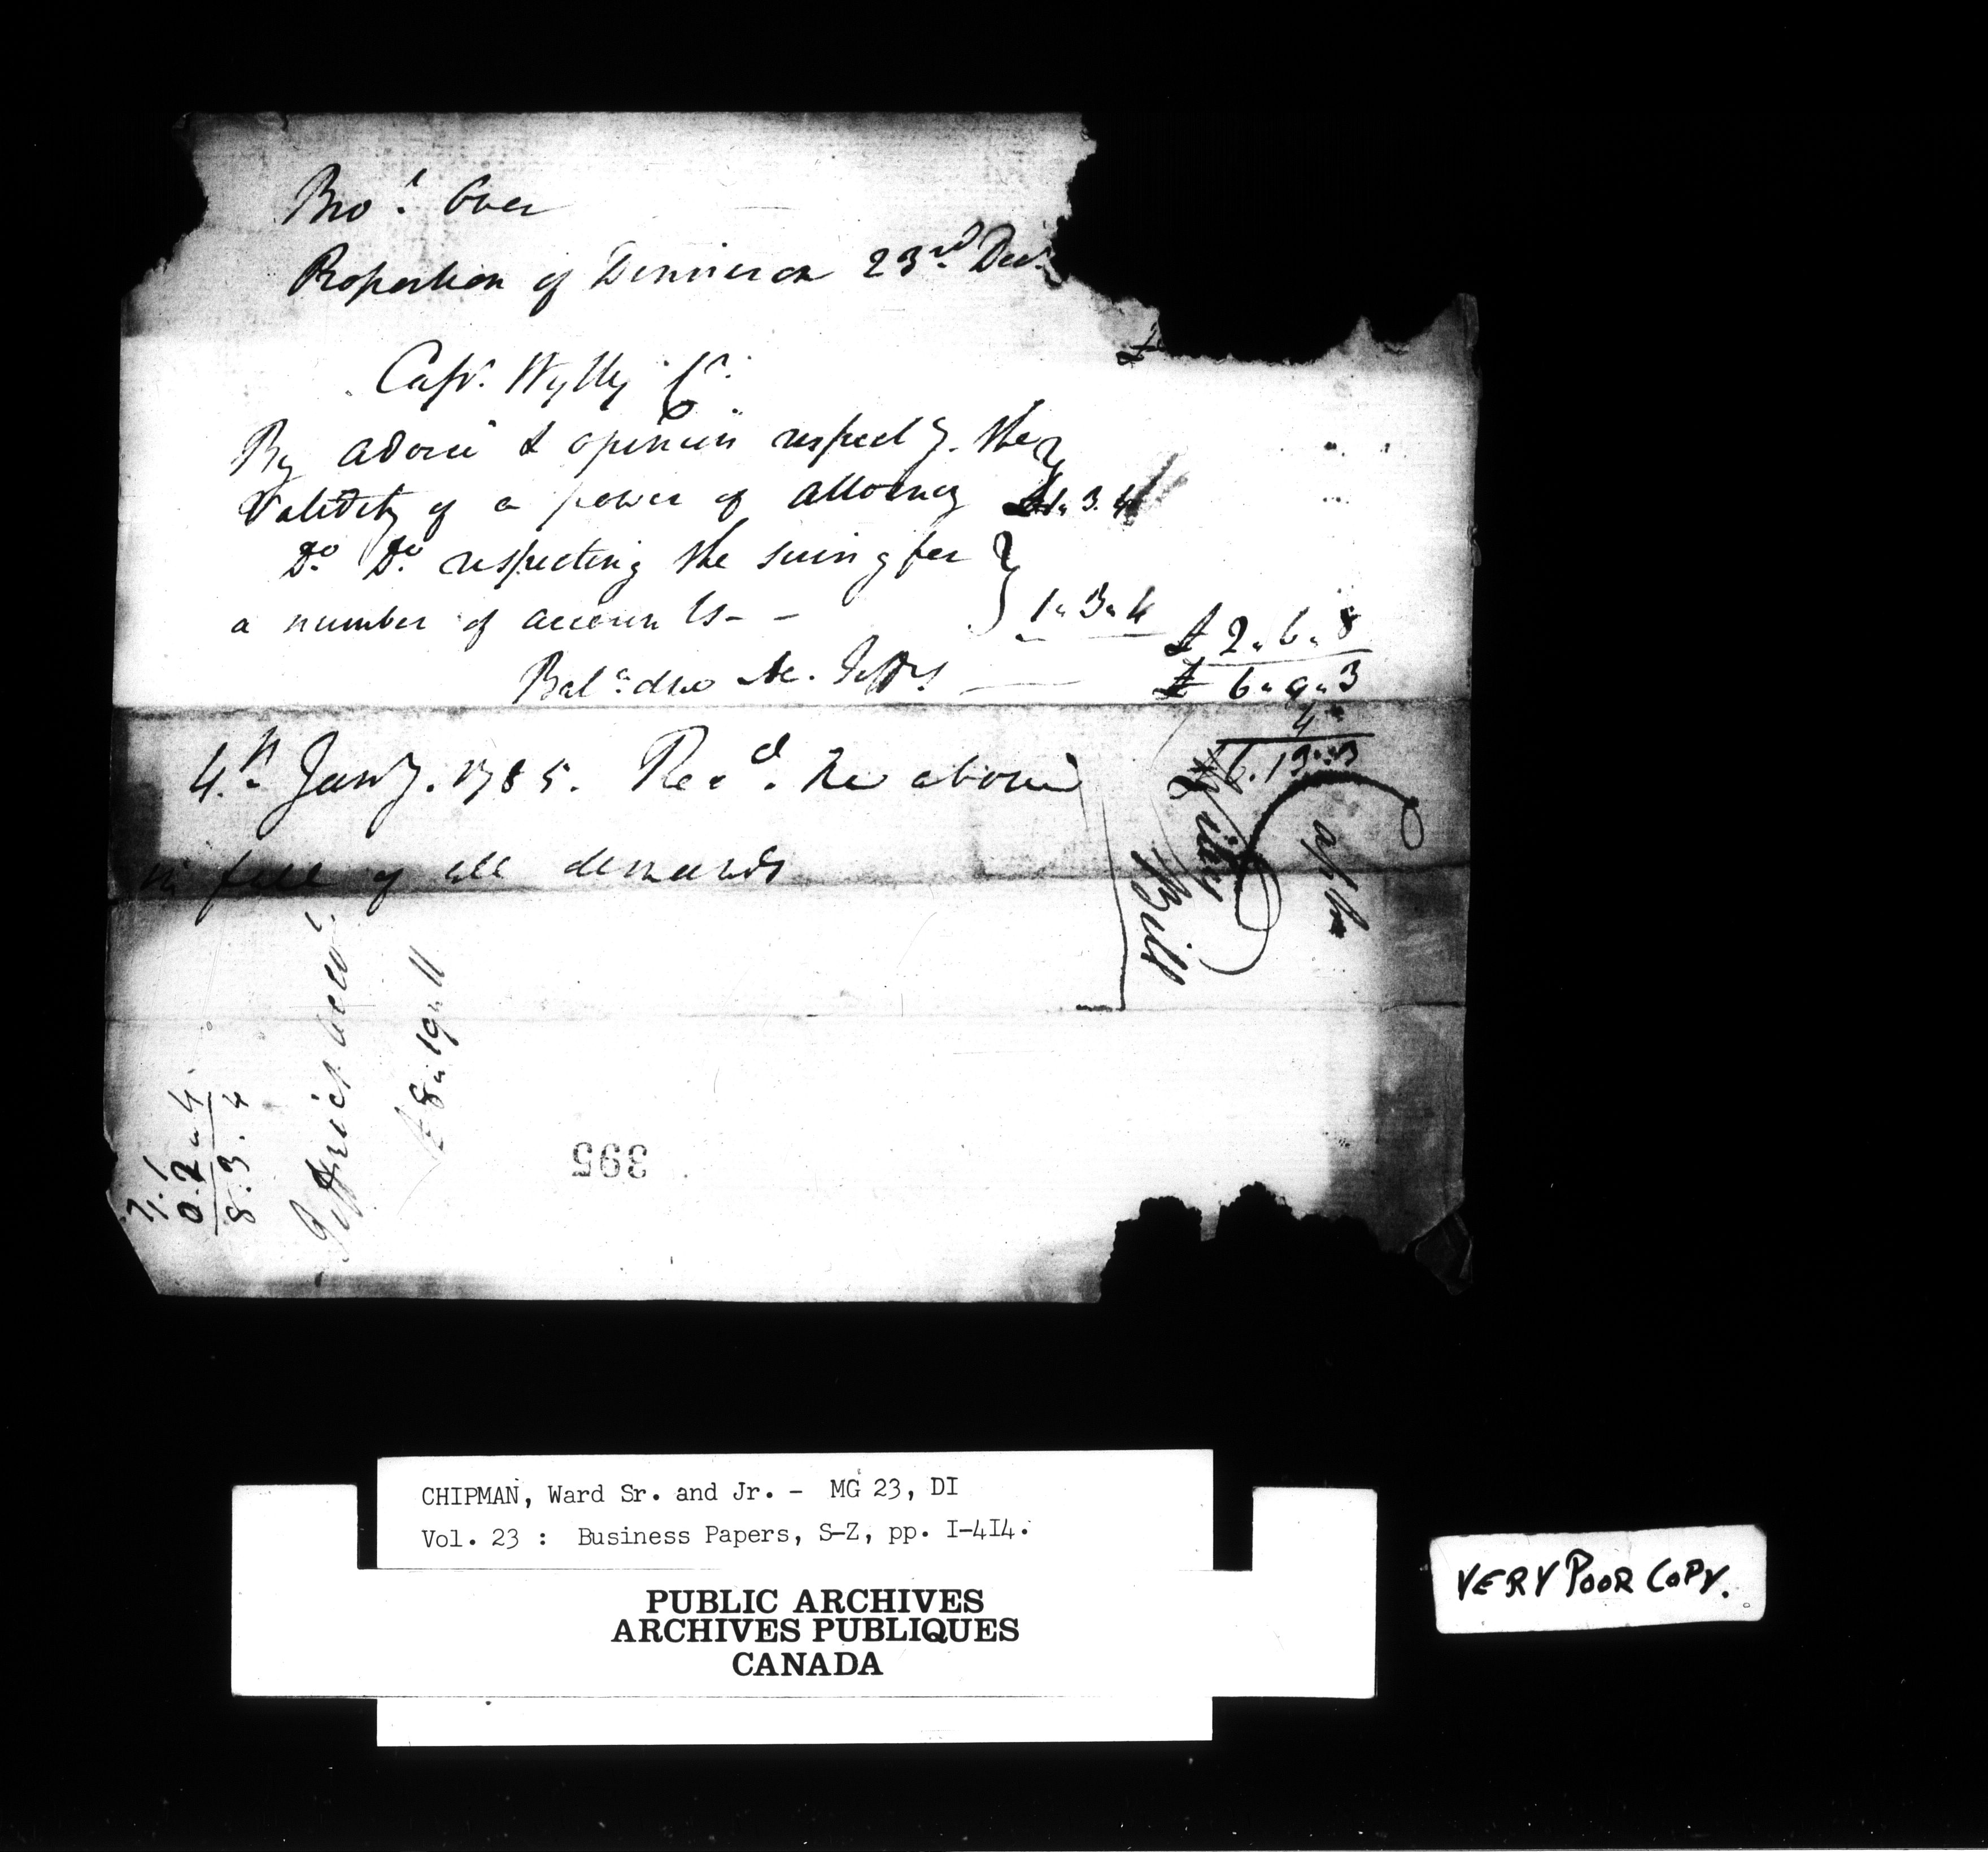 Bro.t Over
Proportion of Dinner on 23.rd Dec.r
£
Capt. Wylly Cr.
By advice & opinion respectg. the
Validity of a power of attorney £1"3.4
Do. Do. respecting the suing for
a number of accounts - - 1"3"4 £2"6"8
Bal.ce due Mr. Jeffs. £6"9"3
4
£6.13"3
4.th Jany. 1785. Rec.d the above
in full of all demands
Bill
8"19"11
0.2"4
8.3.4
395
CHIPMAN, Ward Sr. and Jr. - MG 23, DI
Vol. 23 : Business Papers, S-Z, pp. I-4I4.
PUBLIC ARCHIVES
ARCHIVES PUBLIQUES
CANADA
VERY POOR COPY.